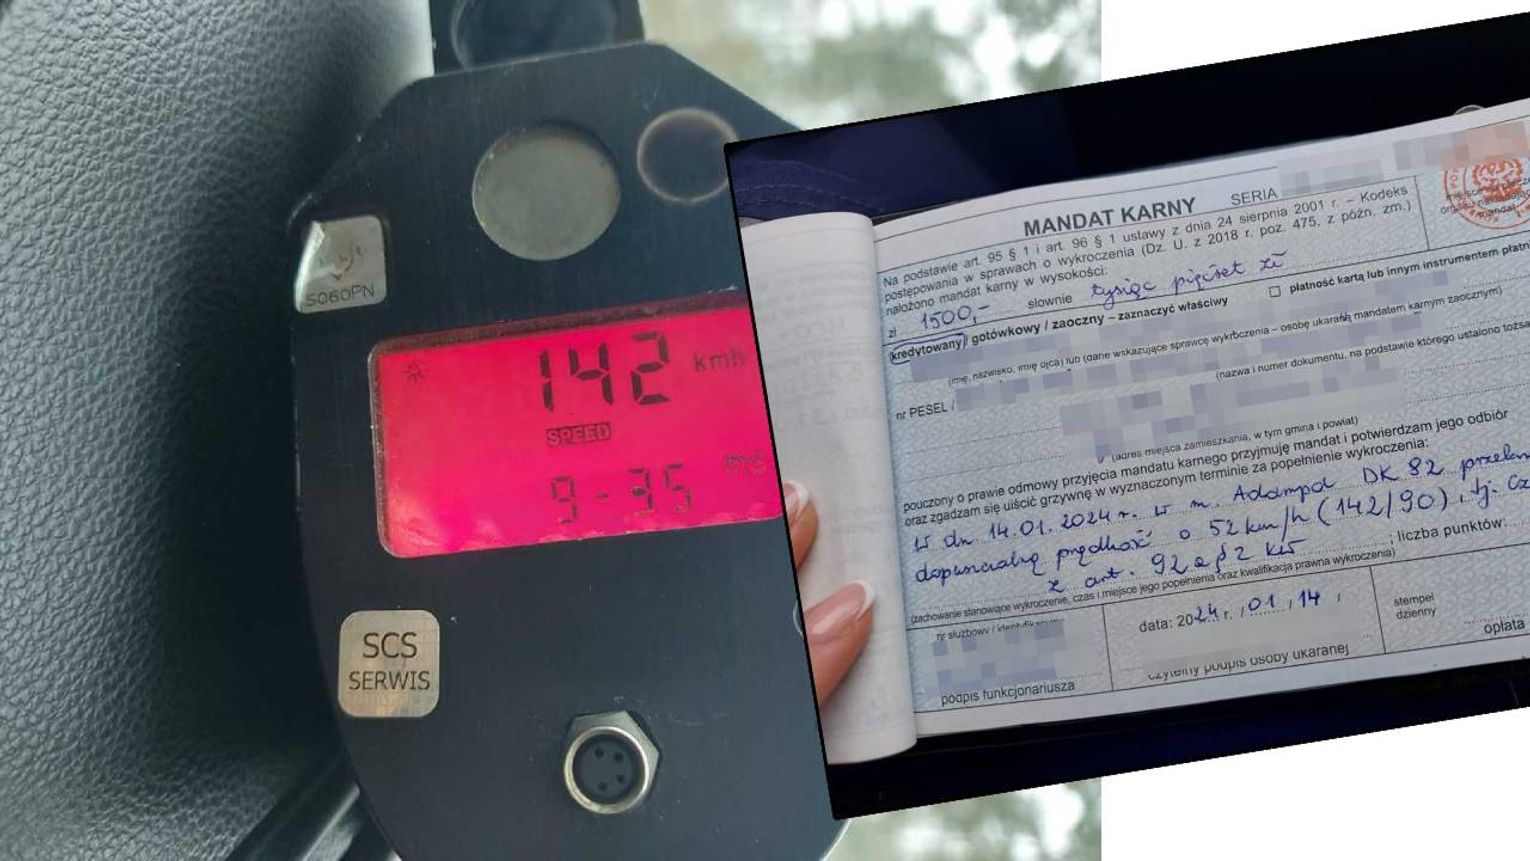 5060PN
142 kmh
SPEED
9-35 ms
SCS
SERWIS
MANDAT KARNY SERIA
Na podstawie art. 95 § 1 i art. 96 § 1 ustawy z dnia 24 sierpnia 2001 r. – Kodeks
postępowania w sprawach o wykroczenia (Dz. U. z 2018 r. poz. 475, z późn. zm.)
nałożono mandat karny w wysokości:
zł 1500,- słownie tysiąc pięćset zł
kredytowany / gotówkowy / zaoczny – zaznaczyć właściwy
płatność kartą lub innym instrumentem płatn
(imię, nazwisko, imię ojca) lub (dane wskazujące sprawcę wykroczenia – osobę ukaraną mandatem karnym zaocznym)
nr PESEL /
(nazwa i numer dokumentu, na podstawie którego ustalono tożsa
(adres miejsca zamieszkania, w tym gmina i powiat)
pouczony o prawie odmowy przyjęcia mandatu karnego przyjmuję mandat i potwierdzam jego odbiór
oraz zgadzam się uiścić grzywnę w wyznaczonym terminie za popełnienie wykroczenia:
w dn. 14.01.2024 r. w m. Adampol DK 82
dopuszczalną prędkość o 52 km/h (142/90), tj. cz
z art. 92a § 2 kw ; liczba punktów:
(zachowanie stanowiące wykroczenie, czas i miejsce jego popełnienia oraz kwalifikacja prawna wykroczenia)
nr służbowy /
data: 2024 r. / 01 / 14 /
stempel
dzienny
podpis funkcjonariusza
czytelny podpis osoby ukaranej
opłata